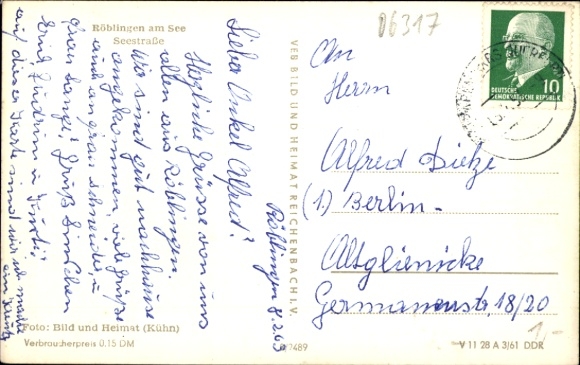 Röblingen am See
Seestraße
06317
Röblingen 8.2.63
Lieber Onkel Alfred!
Herzliche Grüsse von uns
allen aus Röblingen.
Wir sind gut nachhause
angekommen, viele Grüße
auch an Frau Schneider u.
Frau Lange. Gruß
Erid u. Kurti
auf dieser Karte sind wir
Foto: Bild und Heimat (Kühn)
Verbraucherpreis 0.15 DM
VEB BILD UND HEIMAT REICHENBACH I. V.
An
Herrn
Alfred Dietze
(1) Berlin-
Altglienicke
Germanenstr. 18/20
10
DEUTSCHE
DEMOKRATISCHE REPUBLIK
V 11 28 A 3/61 DDR
7489
1,-